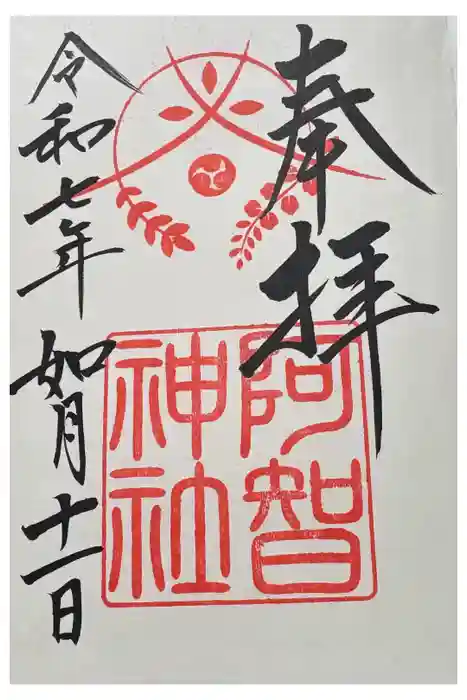 奉拝
阿智
神社
令和七年如月十一日